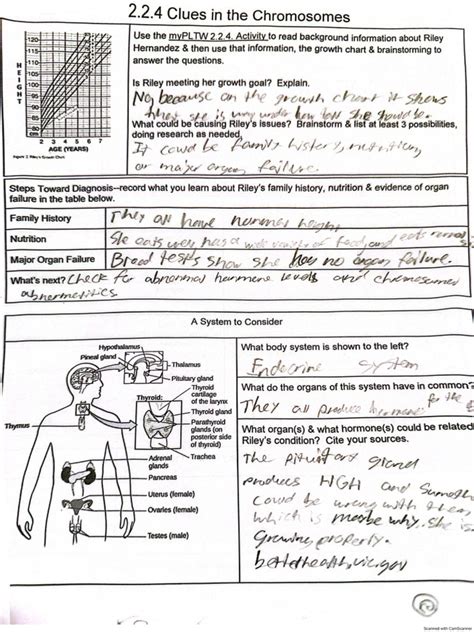 2.2.4 Clues in the Chromosomes
Use the myPLTW 2.2.4. Activity to read background information about Riley
Hernandez & then use that information, the growth chart & brainstorming to
answer the questions.
HEIGHT
120
115
110
105
100
95
90
85
80
2 3 4 5 6 7
AGE (YEARS)
Figure 2 Riley's Growth Chart
Is Riley meeting her growth goal? Explain.
No, because on the growth chart it shows
that she is way under how tall she should be.
What could be causing Riley's issues? Brainstorm & list at least 3 possibilities,
doing research as needed.
It could be family history, nutrition,
or major organ failure.
Steps Toward Diagnosis--record what you learn about Riley's family history, nutrition & evidence of organ
failure in the table below.
Family History
They all have normal height
Nutrition
She eats very has a wide variety of food, and eats normal
Major Organ Failure
Blood tests show she has no organ failure.
What's next? Check for abnormal hormone levels and chromosomes
A System to Consider
Hypothalamus
Pineal gland
Thalamus
Pituitary gland
Thyroid:
Thyroid cartilage of the larynx
Thyroid gland
Parathyroid glands (on posterior side of thyroid)
Trachea
Thymus
Adrenal glands
Pancreas
Uterus (female)
Ovaries (female)
Testes (male)
What body system is shown to the left?
Endocrine System
What do the organs of this system have in common?
They all produce hormones for the
What organ(s) & what hormone(s) could be related
Riley's condition? Cite your sources.
The pituitary gland
produces HGH and
could be wrong with them
which is maybe why she is
growing properly.
betterhealth.vic.gov
Scanned with CamScanner